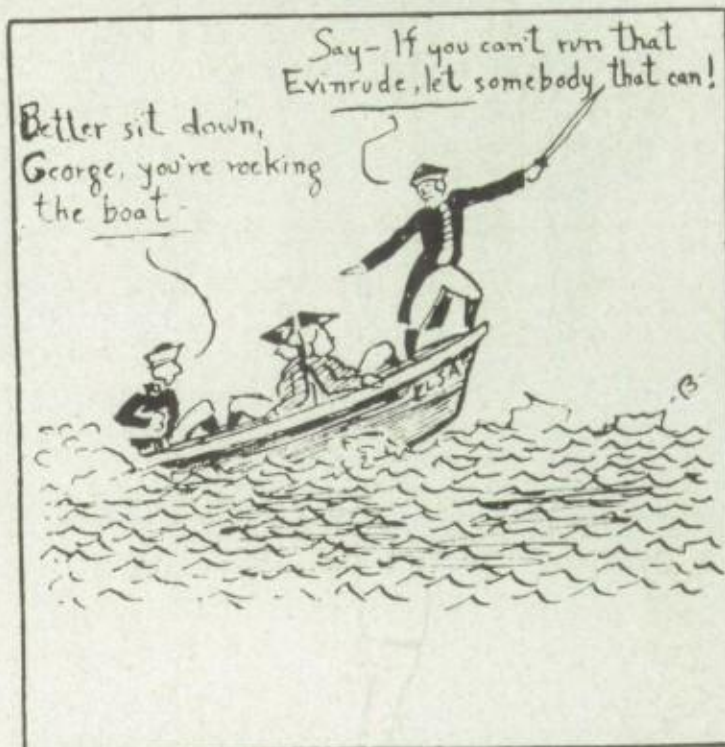 Say - If you can't run that
Evinrude, let somebody that can!
Better sit down,
George, you're rocking
the boat -
ELSA